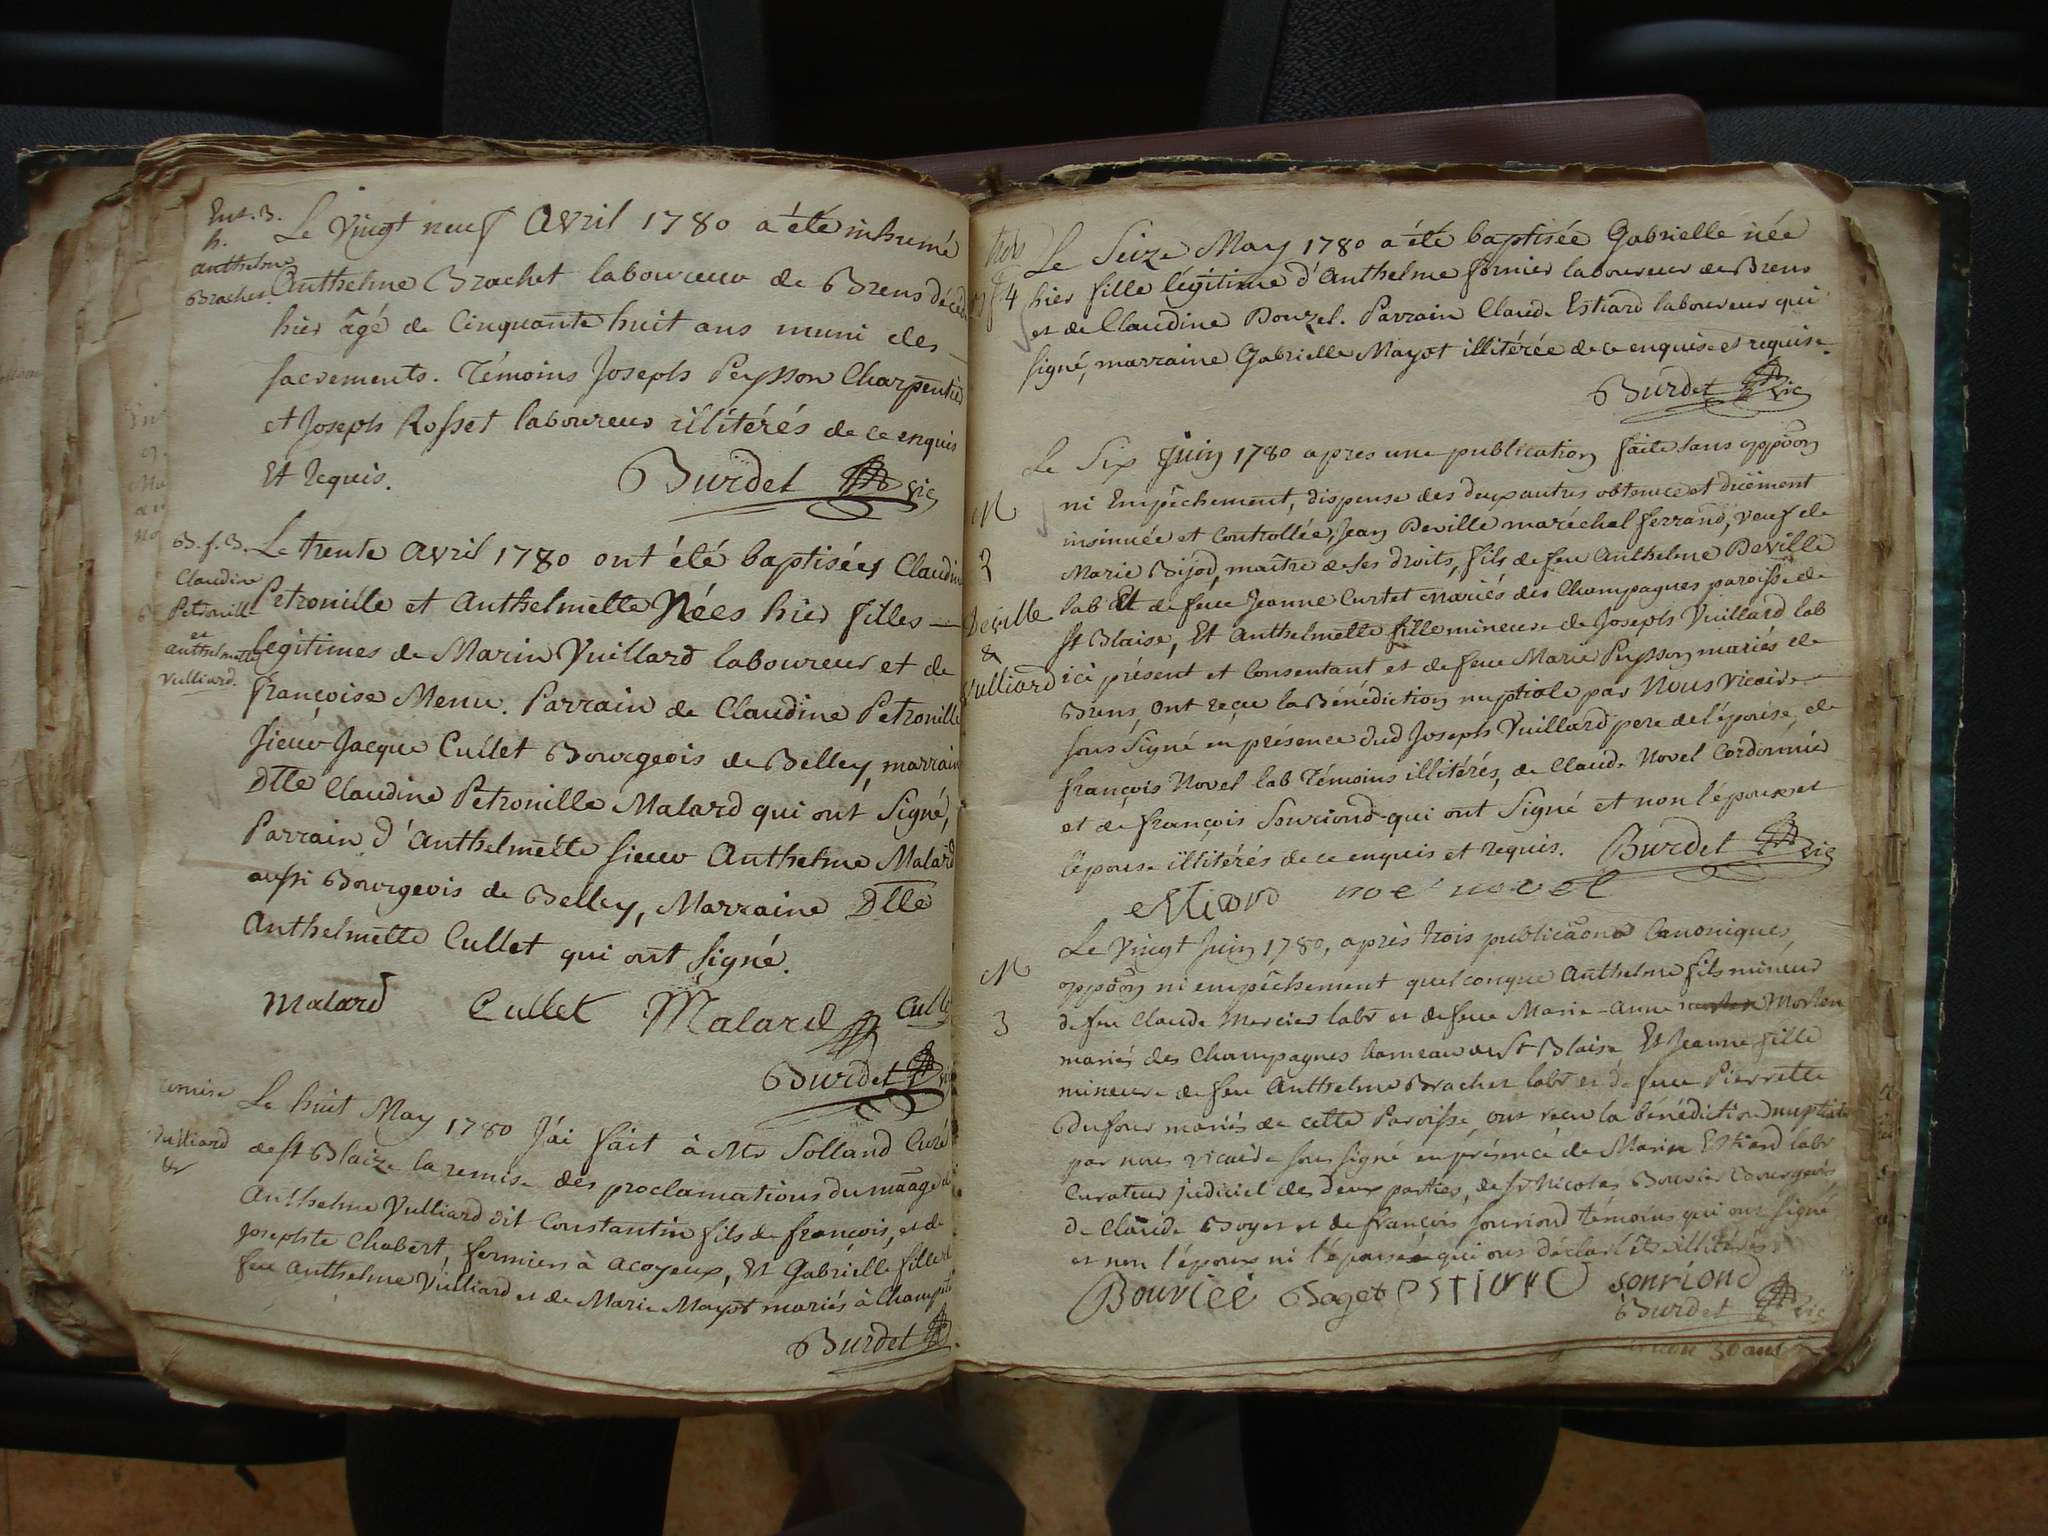 Ent. B.
h.
anthelme
Brachet.
Le Vingt neuf Avril 1780 a été inhumé
Anthelme Brachet laboureur de Brens décédé
hier âgé de Cinquante huit ans muni des
sacrements. Témoins Joseph Peysson Charpentier
et Joseph Rosset laboureur illitérés de ce enquis
Et requis. Burdet vic
B. f. B.
Claudine
Petronille
et
anthelmette
Vulliard.
Le trente Avril 1780 ont été baptisées Claudine
Petronille et Anthelmette Nées hier filles
legitimes de Marin Vuillard laboureur et de
françoise Menu. Parrain de Claudine Petronille
sieur Jacque Cullet Bourgeois de Belley, marraine
Dlle Claudine Petronille Malard qui ont signé,
Parrain d'Anthelmette sieur Anthelme Malard
aussi Bourgeois de Belley, Marraine Dlle
Anthelmette Cullet qui ont signé.
Malard Cullet Malard Cullet
Burdet vic
remise
Vulliard
&
Le huit May 1780 J'ai fait à Mr Solland Curé
de St Blaize la remise des proclamations du mãage de
Anthelme Vulliard dit Constantin fils de françois, et de
Josephte Chabert, fermiers à Acoyeux, Et Gabrielle fille de
feu Anthelme Vulliard et de Marie Mayot mariés à Champ
Burdet
f 4
Le Seize May 1780 a été baptisée Gabrielle née
hier fille légitime d'Anthelme fornier laboureur de Brens
et de Claudine Douzel. Parrain Claude Estiard laboureur qui
signé, marraine Gabrielle Mayot illitérée de ce enquise et requise.
Burdet vic
M
2
Deville
&
Vulliard
Le Six Juin 1780 apres une publication faite sans oppõon
ni Empêchement, dispense des deux autres obtenue et duement
insinuée et Controllée, Jean Deville maréchal ferrand, veuf de
Marie Bijod, maître de ses droits, fils de feu Anthelme Deville
lab Et de feue Jeanne Curtet mariés des Champagnes paroisse de
St Blaise, Et Anthelmette fille mineure de Joseph Vuillard lab
ici présent et Consentant et de feue Marie Peysson mariés de
Brens, Ont reçu la Bénédiction nuptiale par Nous vicaire
sous signé en présence dud Joseph Vuillard pere de l'épouse, de
françois Novel lab Témoins illitérés, de Claude Novel Cordonnier
et de françois Souriond qui ont signé et non l'époux et
l'épouse illitérés de ce enquis et requis. Burdet vic
estiard noel novel
M
3
Le Vingt Juin 1780, après trois publicãons Canoniques,
oppõon ni empêchement quelconque Anthelme fils mineur
de feu Claude Mercier labr et de feue Marie-Anne Morten
mariés des Champagnes hameau de St Blaise, Et Jeanne fille
mineure de feu Anthelme Brachet labr et de feue Pierrette
Dufour mariés de cette Paroisse, ont reçu la bénédiction nuptiale
par nous vicaire sous signé en présence de Marin Estiard labr
Curateur judiciel des deux parties, de Sr Nicolas Bouvier Bourgeois,
de Claude Boget et de françois Souriond témoins qui ont signé
et non l'époux ni l'épouse qui ont déclaré être illitérés
Bouvier Boget estiard sonriond
Burdet vic
30 ans